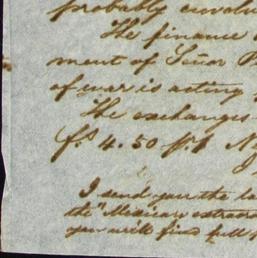 probably
The finance
ment of Señor
of war is acting
The exchanges
4.50
I send you the
the "Mexican extraor
you will find full